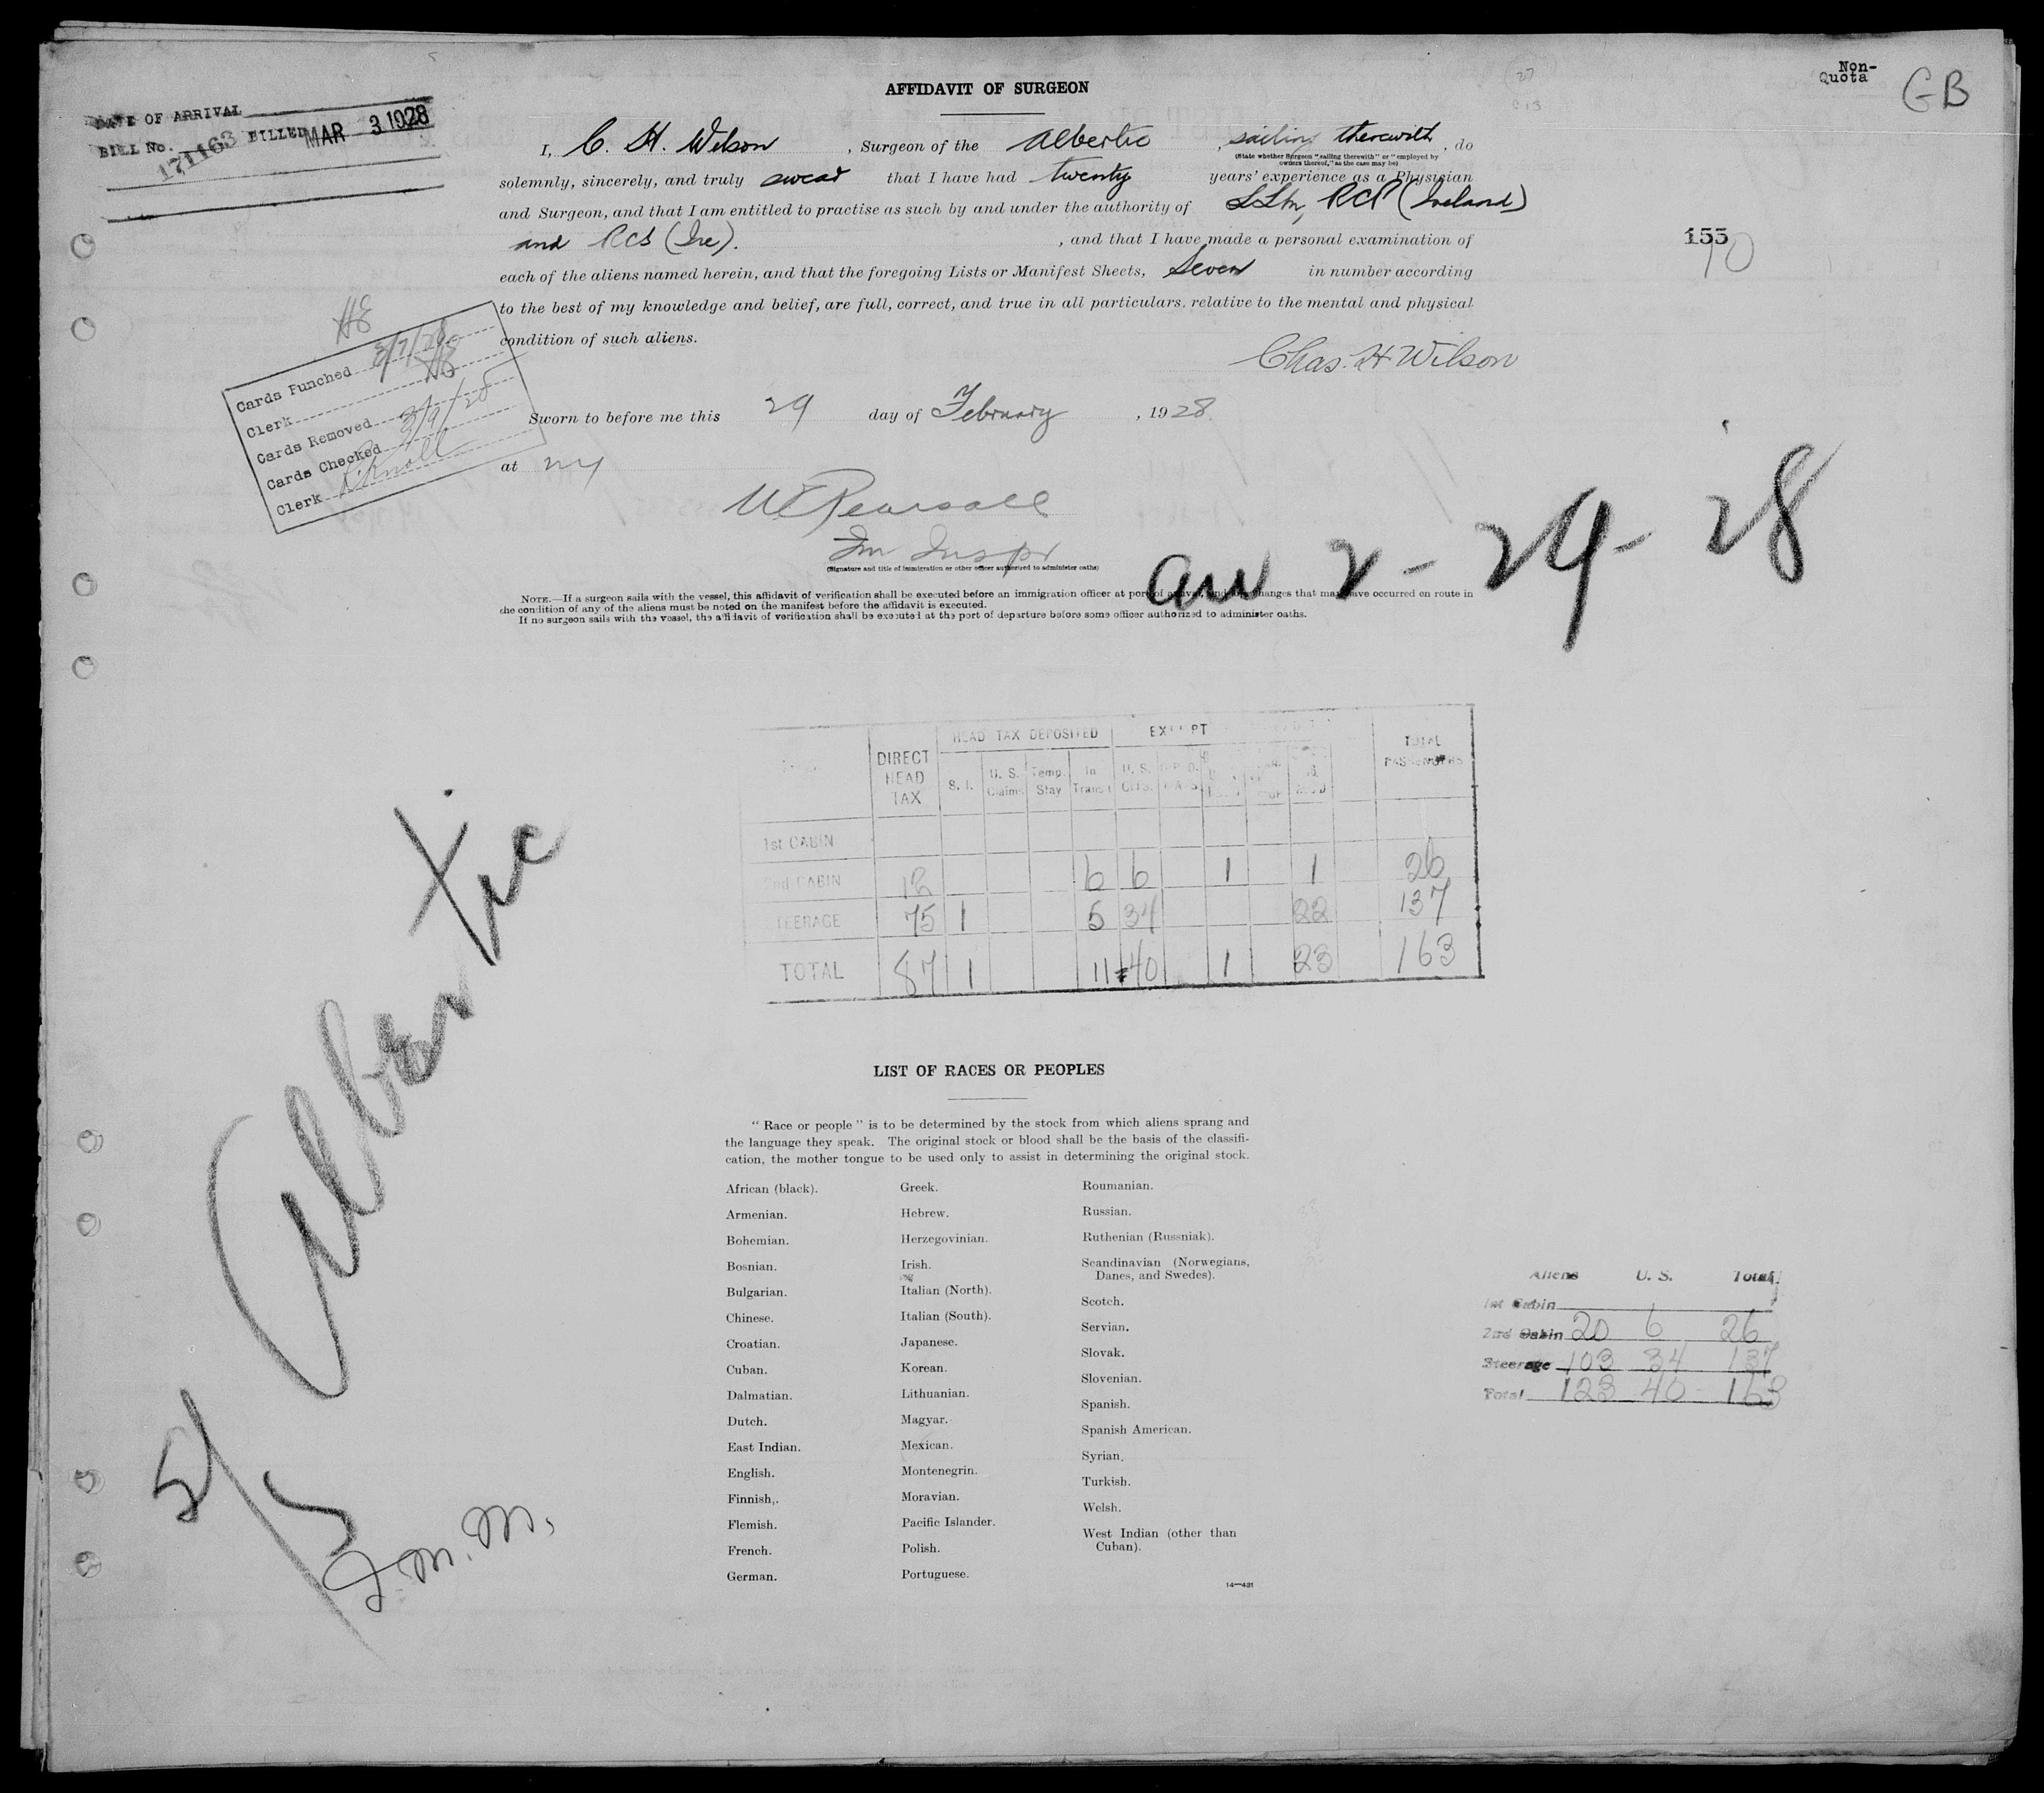 Non-
Quota
GB
DATE OF ARRIVAL
BILL No. 171163 BILLED MAR 3 1928
AFFIDAVIT OF SURGEON
I, C. H. Wilson, Surgeon of the Albertic, sailing therewith, do
(State whether Surgeon "sailing therewith" or "employed by
owners thereof," as the case may be)
solemnly, sincerely, and truly swear that I have had twenty years' experience as a Physician
and Surgeon, and that I am entitled to practise as such by and under the authority of LLM, RCP (Ireland)
and RCS (Ire)., and that I have made a personal examination of
155
10
each of the aliens named herein, and that the foregoing Lists or Manifest Sheets, Seven in number according
to the best of my knowledge and belief, are full, correct, and true in all particulars. relative to the mental and physical
condition of such aliens.
Chas. H Wilson
HE
Cards Punched 3/7/28
Clerk HE
Cards Removed
Cards Checked 3/9/28
Clerk
Sworn to before me this 29 day of February, 1928.
at NY
W Pearsall
Im Inspr
(Signature and title of immigration or other officer authorized to administer oaths)
arr 2-29-28
NOTE.—If a surgeon sails with the vessel, this affidavit of verification shall be executed before an immigration officer at port of arrival, and any changes that may have occurred en route in
the condition of any of the aliens must be noted on the manifest before the affidavit is executed.
If no surgeon sails with the vessel, the affidavit of verification shall be executed at the port of departure before some officer authorized to administer oaths.
DIRECT HEAD TAX HEAD TAX DEPOSITED EXEMPT TOTAL PASSENGERS
S. I. U. S. Claims Temp. Stay In Transit U. S. CITS.
1st CABIN
2nd CABIN 12 6 6 1 1 26
STEERAGE 75 1 5 34 22 137
TOTAL 87 1 11 40 1 23 163
Albertic
LIST OF RACES OR PEOPLES
" Race or people " is to be determined by the stock from which aliens sprang and
the language they speak. The original stock or blood shall be the basis of the classifi-
cation, the mother tongue to be used only to assist in determining the original stock.
African (black).
Armenian.
Bohemian.
Bosnian.
Bulgarian.
Chinese.
Croatian.
Cuban.
Dalmatian.
Dutch.
East Indian.
English.
Finnish.
Flemish.
French.
German.
Greek.
Hebrew.
Herzegovinian.
Irish.
Italian (North).
Italian (South).
Japanese.
Korean.
Lithuanian.
Magyar.
Mexican.
Montenegrin.
Moravian.
Pacific Islander.
Polish.
Portuguese.
Roumanian.
Russian.
Ruthenian (Russniak).
Scandinavian (Norwegians,
Danes, and Swedes).
Scotch.
Servian.
Slovak.
Slovenian.
Spanish.
Spanish American.
Syrian.
Turkish.
Welsh.
West Indian (other than
Cuban).
14—431
Aliens U. S. Total
1st Cabin
2nd Cabin 20 6 26
Steerage 103 34 137
Total 123 40 163
I.M.M.